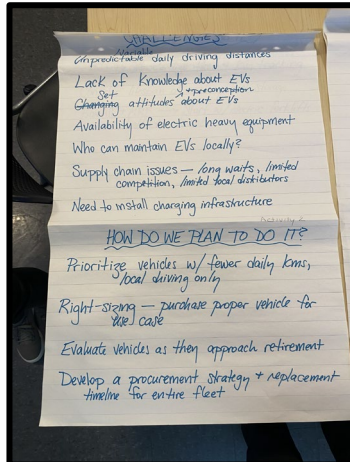 CHALLENGES
Variable
Unpredictable daily driving distances
Lack of Knowledge about EVs
Set + preconception
Changing attitudes about EVs
Availability of electric heavy equipment
Who can maintain EVs locally?
Supply chain issues — long waits, limited
competition, limited local distributors
Need to install charging infrastructure
HOW DO WE PLAN TO DO IT?
Prioritize vehicles w/ fewer daily kms,
local driving only
Right-sizing — purchase proper vehicle for
use case
Evaluate vehicles as they approach retirement
Develop a procurement strategy + replacement
timeline for entire fleet